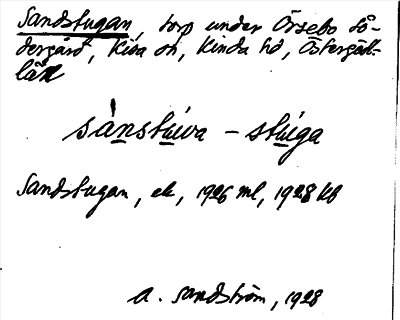 Sandstugan, torp under Örsebo Sö-
dergård, Kisa sn, Kinda hd, Östergötl:
län
sànstúva – stúga
Sandstugan, ek, 1926 ml, 1928 kb
A. Sandström, 1928